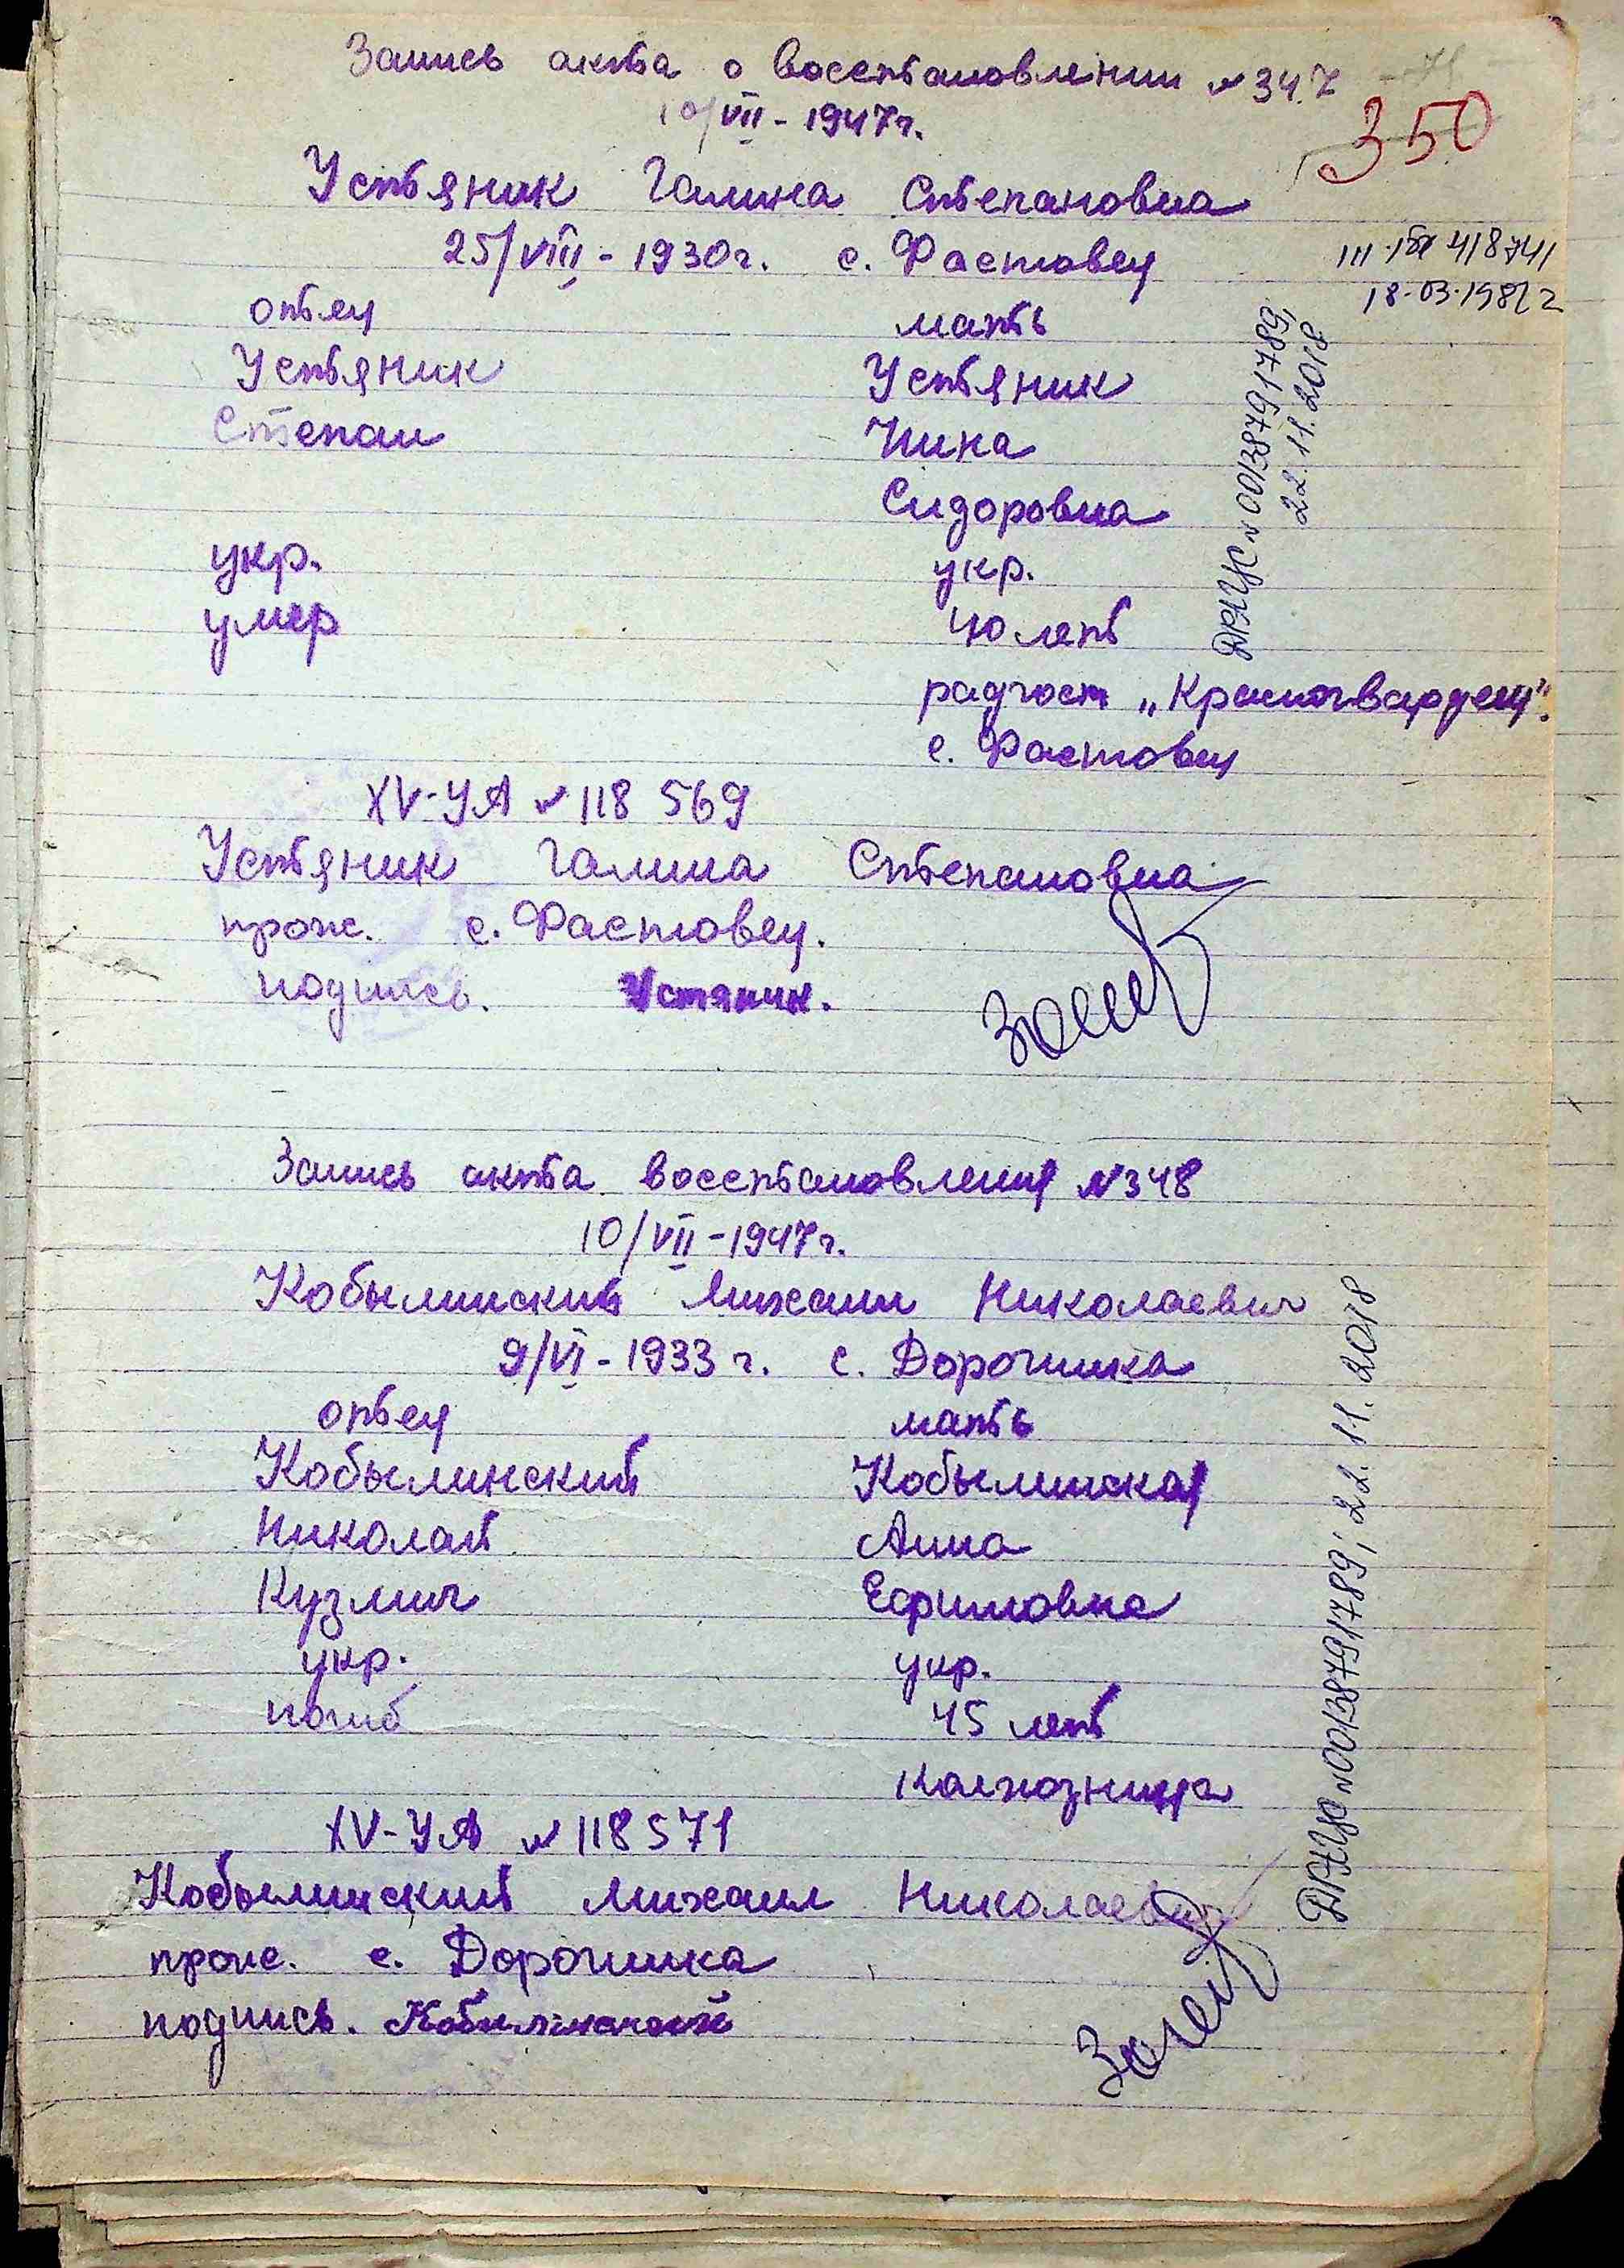 Запись акта о восстановлении № 347
10/VII - 1947 г.
350
Устяник Галина Степановна
25/VIII - 1930 г. с. Фастовец
418741
18.03.1981 г
отец мать
Устяник Устяник
Степан Нина
Сидоровна
укр. укр.
умер 40 лет
радгосп „Красногвардеец".
с. Фастовец
ДРАЦС № 00138791789,
22.11.2018
XV-УА № 118 569
Устяник Галина Степановна
прож. с. Фастовец.
подпись. Устяник.
Запись акта восстановления № 348
10/VII - 1947 г.
Кобылинский Михаил Николаевич
9/VI - 1933 г. с. Дорогинка
отец мать
Кобылинский Кобылинская
Николай Анна
Кузмич Ефимовна
укр. укр.
погиб 45 лет
колхозница
ДРАЦС № 00138791789, 22.11.2018
XV-УА № 118571
Кобылинский Михаил Николаевич
прож. с. Дорогинка
подпись.